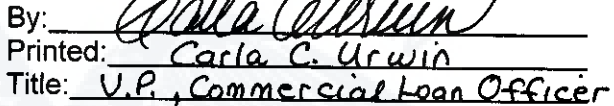 By: Carla C Urwin
Printed: Carla C. Urwin
Title: V.P., Commercial Loan Officer